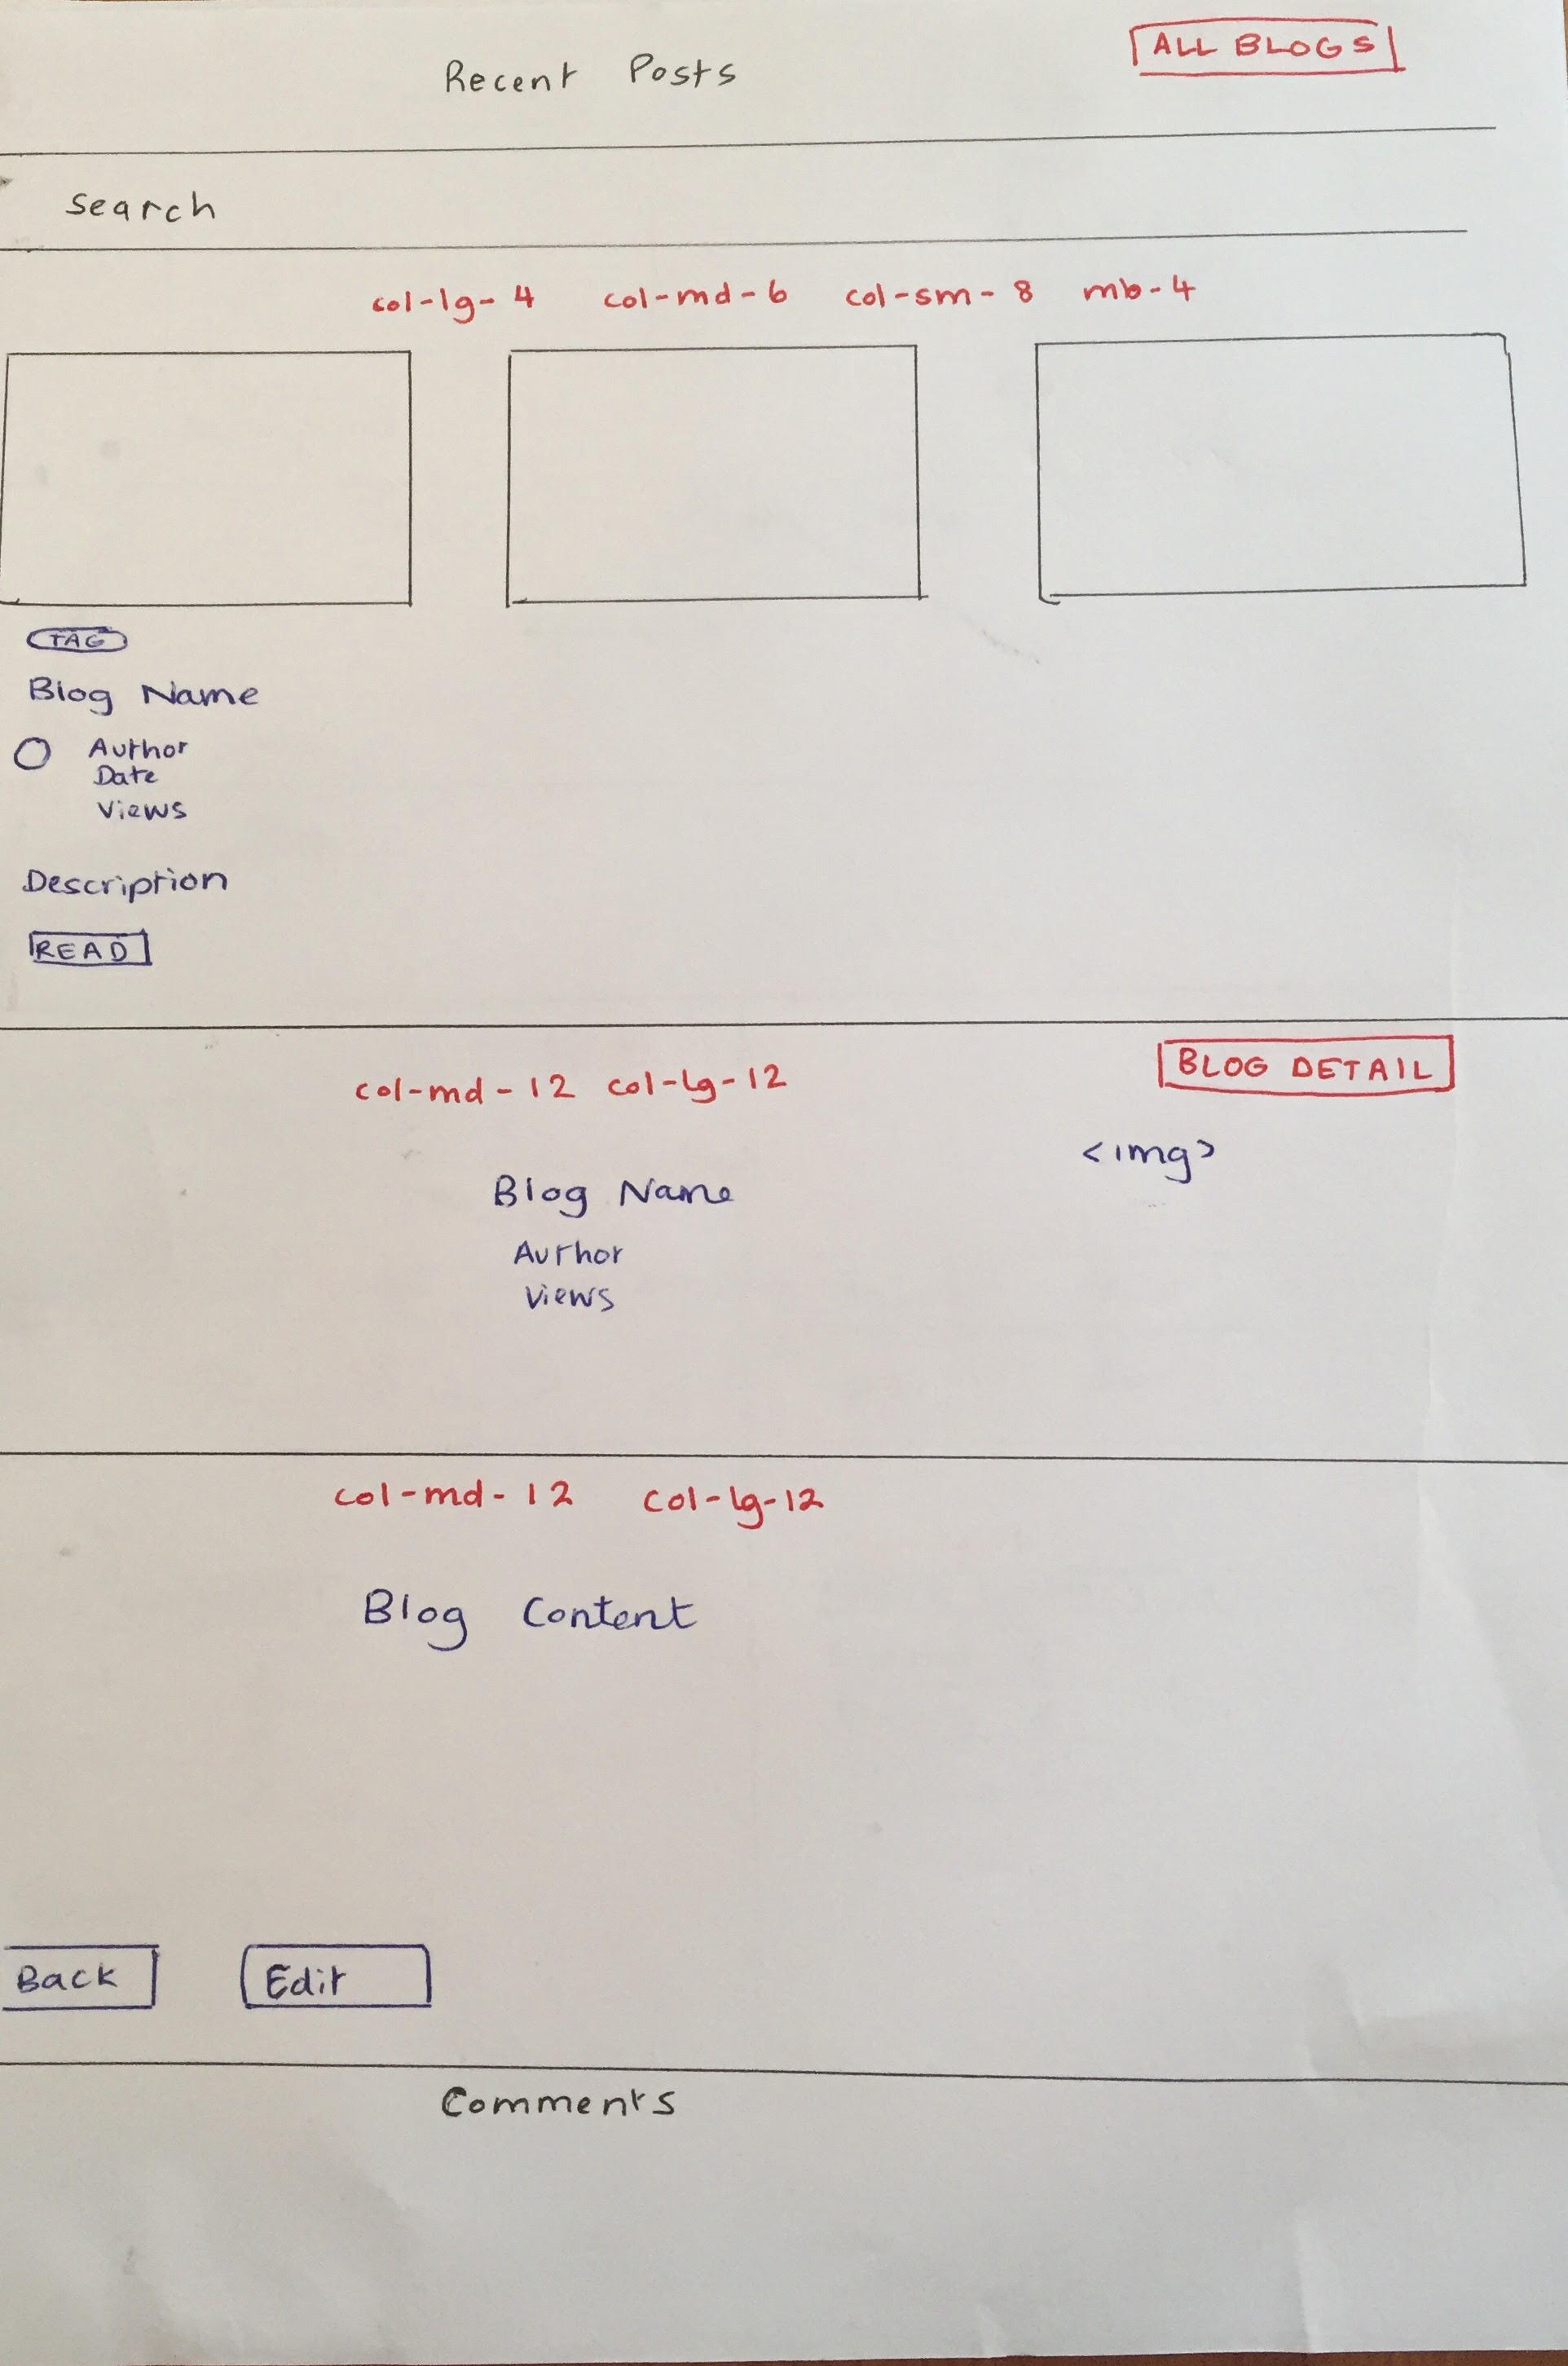 Recent Posts
ALL BLOGS
Search
col-lg-4 col-md-6 col-sm-8 mb-4
TAG
Blog Name
Author
Date
Views
Description
READ
BLOG DETAIL
col-md-12 col-lg-12
<img>
Blog Name
Author
Views
col-md-12 col-lg-12
Blog Content
Back Edit
Comments